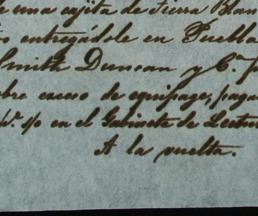 e una cajita de Tierra Blan
entregádole en Puebla
Smith Duncan y Cª. p
bre exceso de equipage, paga
pº. s/o en el Gabinete de Lectur
A la vuelta.